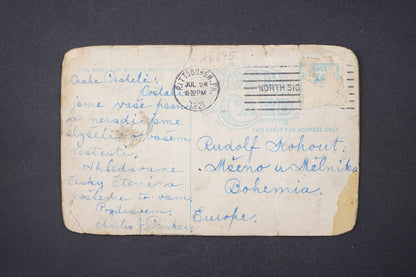 Drahe Prateli:
Dostali
jsme vaše psaní
a neradi jsme
slyšeli o vašem
neštestí.
Ohledavame
česky čteni a
posleme to vam.
Pozdravem,
Charles J.
PITTSBURGH, PA.
JUL 24
6-PM
1921
NORTH SID
THIS SPACE FOR ADDRESS ONLY
Rudolf Kohout,
Mšeno u Mělníka
Bohemia.
Europe.